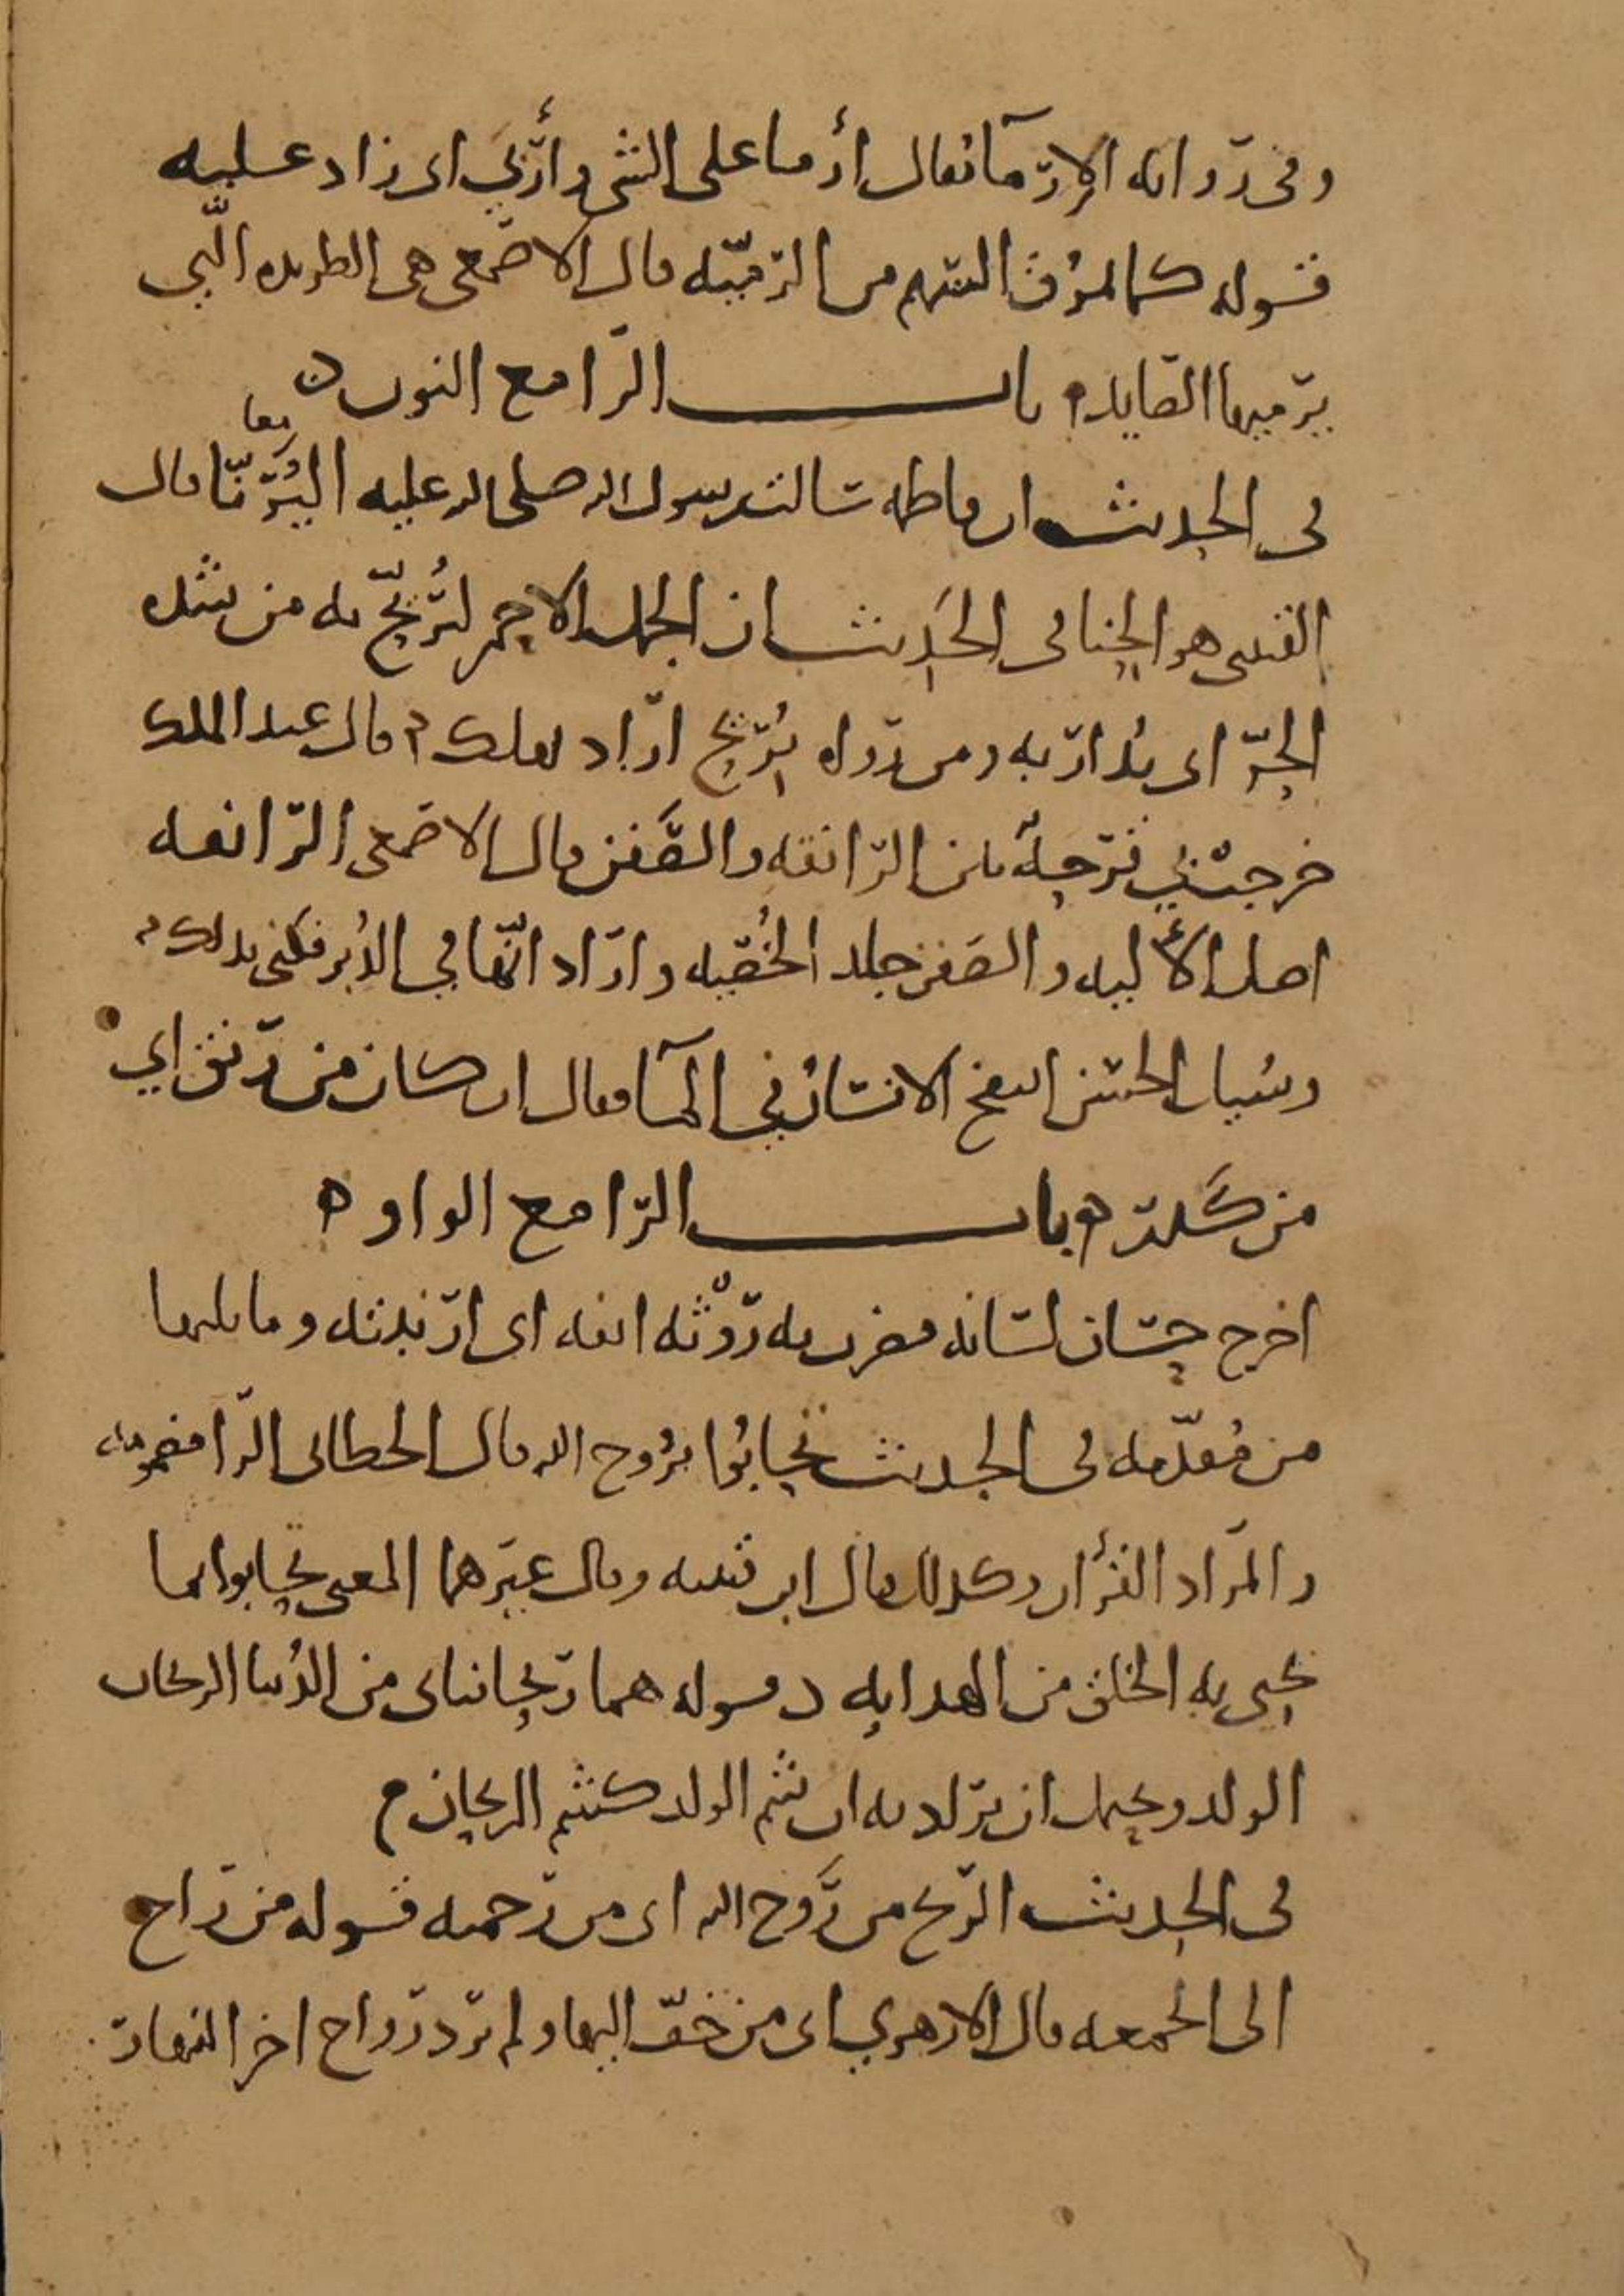 وفي رواية الإرماء يقال أرما على الشي وأربى اي زاد عليه
قوله كما يمرق السهم من الرميّه قال الاصمعي هي الطريده التي
يرميها الصايد باب الرا مع النون
في الحديث ان فاطمه سالت رسول الله صلى الله عليه اليُرَنّا معا قال
القتبي هو الحنا في الحديث ان الجمل الاحمر ليُرَنَّح به من شده
الحرّ اي يُدار به ومن رواه يُريح اراد يهلك قال عبد الملك
خرجت بي قرحة بين الرانفه والصَفَن قال الاصمعي الرانفه
اصل الألية والصفن جلد الخُصيه واراد انّها في الدُبر فكنى بذلك
وسُيل الحسن اينفخ الانسان في المآ فقال ان كان من رَنَق اي
من كَدَر باب الرا مع الواو
اخرج حسان لسانه فضرب به رَوْثة انفه اي ارنبته وما يليها
من مُقدّمه في الحديث تحابُّوا برُوح الله قال الخطابي الرا مضمومه
والمراد القرأن وكذلك قال ابن قتيبه وقال غيرهما المعنى تحابوا بما
يحيى به الخلق من الهدايه قوله هما ريحانتاي من الدُنيا الريحان
الولد ويحتمل ان يراد به ان شم الولد كشم الريحان
في الحديث الريح من رَوح الله اي من رحمته قوله من راح
الى الجمعه قال الازهري اي من خفّ اليها ولم يرد رواح اخر النهار